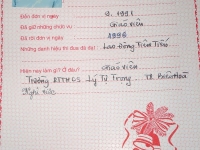 Đến đơn vị ngày 9. 1991
Đã giữ những chức vụ Giáo viên
Đã rời đơn vị ngày 1996
Những danh hiệu thi đua đã đạt Lao Động Tiên Tiến
Hiện nay làm gì? Ở đâu? Giáo viên
Trường PTTHCS Lý Tự Trọng TX
Nghỉ